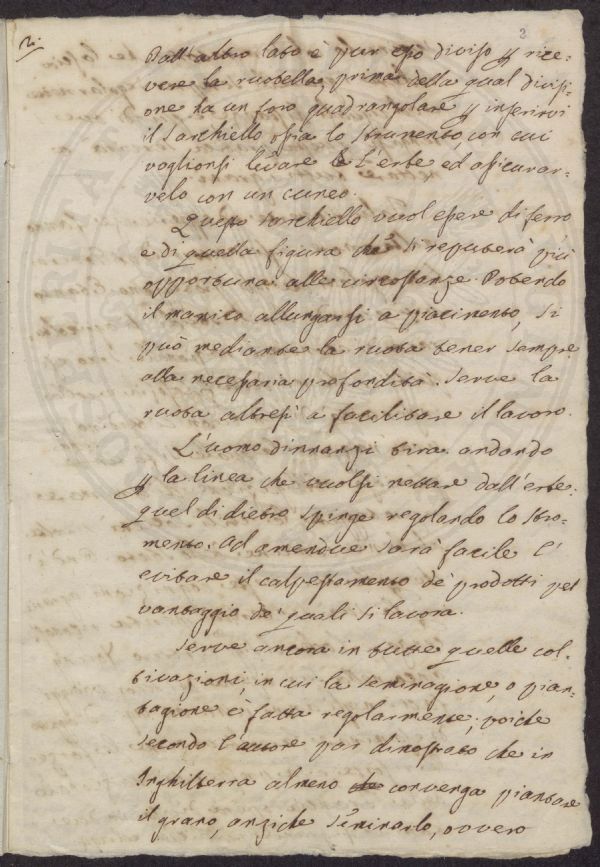 2.
2
Dall'altro lato è pur esso diviso p rice-
vere la ruotella, prima della qual divisi-
one ha un foro quadrangolare p inserirvi
il Sarchiello ossia lo strumento, con cui
voglionsi levare l'erbe ed assicurar-
velo con un cuneo.
Questo sarchiello vuol essere di ferro
e di quella figura che si reputerà più
opportuna alle circostanze. Potendo
il manico allungarsi a piacimento, si
può mediante la ruota tener sempre
alla necessaria profondità. Serve la
ruota altresì a facilitare il lavoro.
L'uomo dinnanzi tira andando
p la linea che vuolsi nettare dall'erbe:
quel di dietro spinge regolando lo stro-
mento. Ad amendue sarà facile l'
evitare il calpestamento de' prodotti pel
vantaggio de' quali si lavora.
Serve ancora in tutte quelle col-
tivazioni, in cui la seminagione, o pian-
tagione è fatta regolarmente; poichè
secondo l'autore par dimostrato che in
Inghilterra almeno convenga piantare
il grano, anzichè seminarlo, ovvero